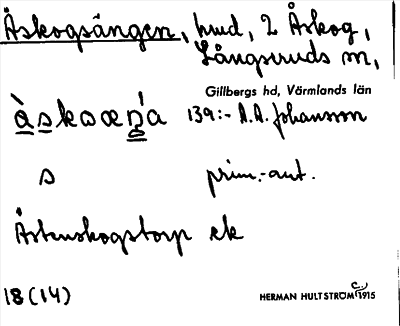 Åskogsängen, hmd, 2 Åskog,
Långseruds sn,
Gillbergs hd, Värmlands län
139:- A.A. Johansson
s prim.-ant.
Åstenskogstorp ek
18(14)
HERMAN HULTSTRÖM c. 1915